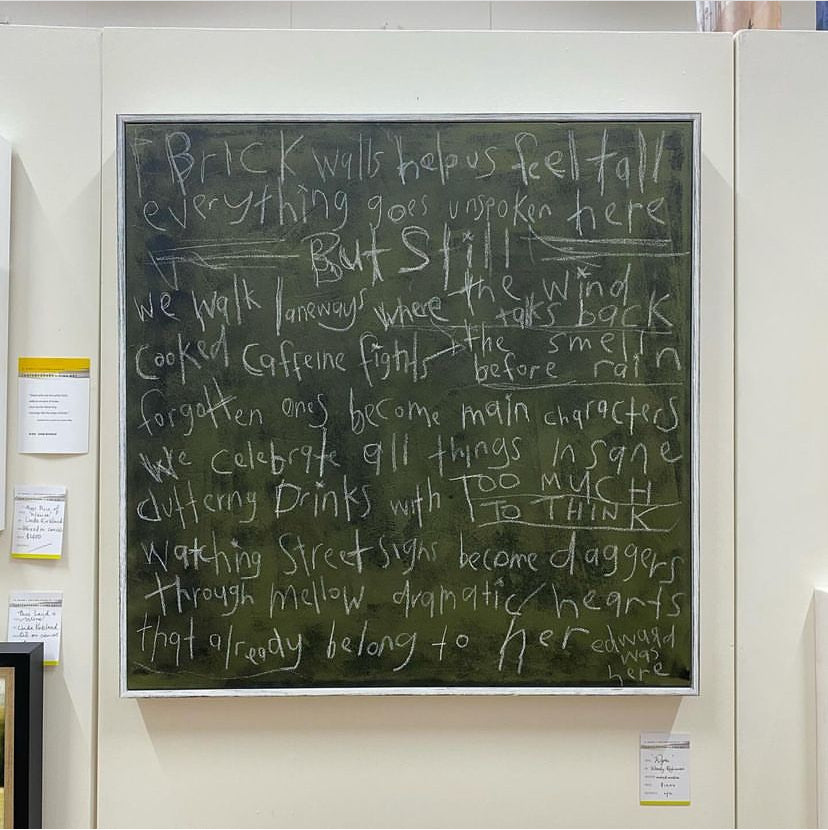 Brick walls help us feel tall
everything goes unspoken here
But Still
we walk laneways where the wind
talks back
cooked caffeine fights the smell
before rain
forgotten ones become main characters
We celebrate all things insane
cluttering Drinks with TOO MUCH
TO THINK
watching Street signs become daggers
through mellow dramatic hearts
that already belong to her
edward
was
here